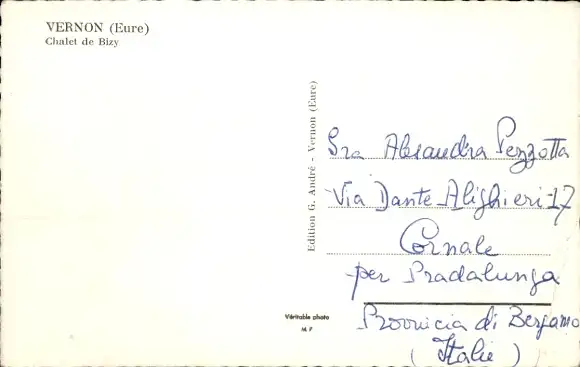 VERNON (Eure)
Chalet de Bizy
Edition G. André - Vernon (Eure)
Véritable photo
M F
Sra Alesandra Pezzotta
Via Dante Alighieri-17
Cornale
per Pradalunga
Provincia di Bergamo
(Italie)